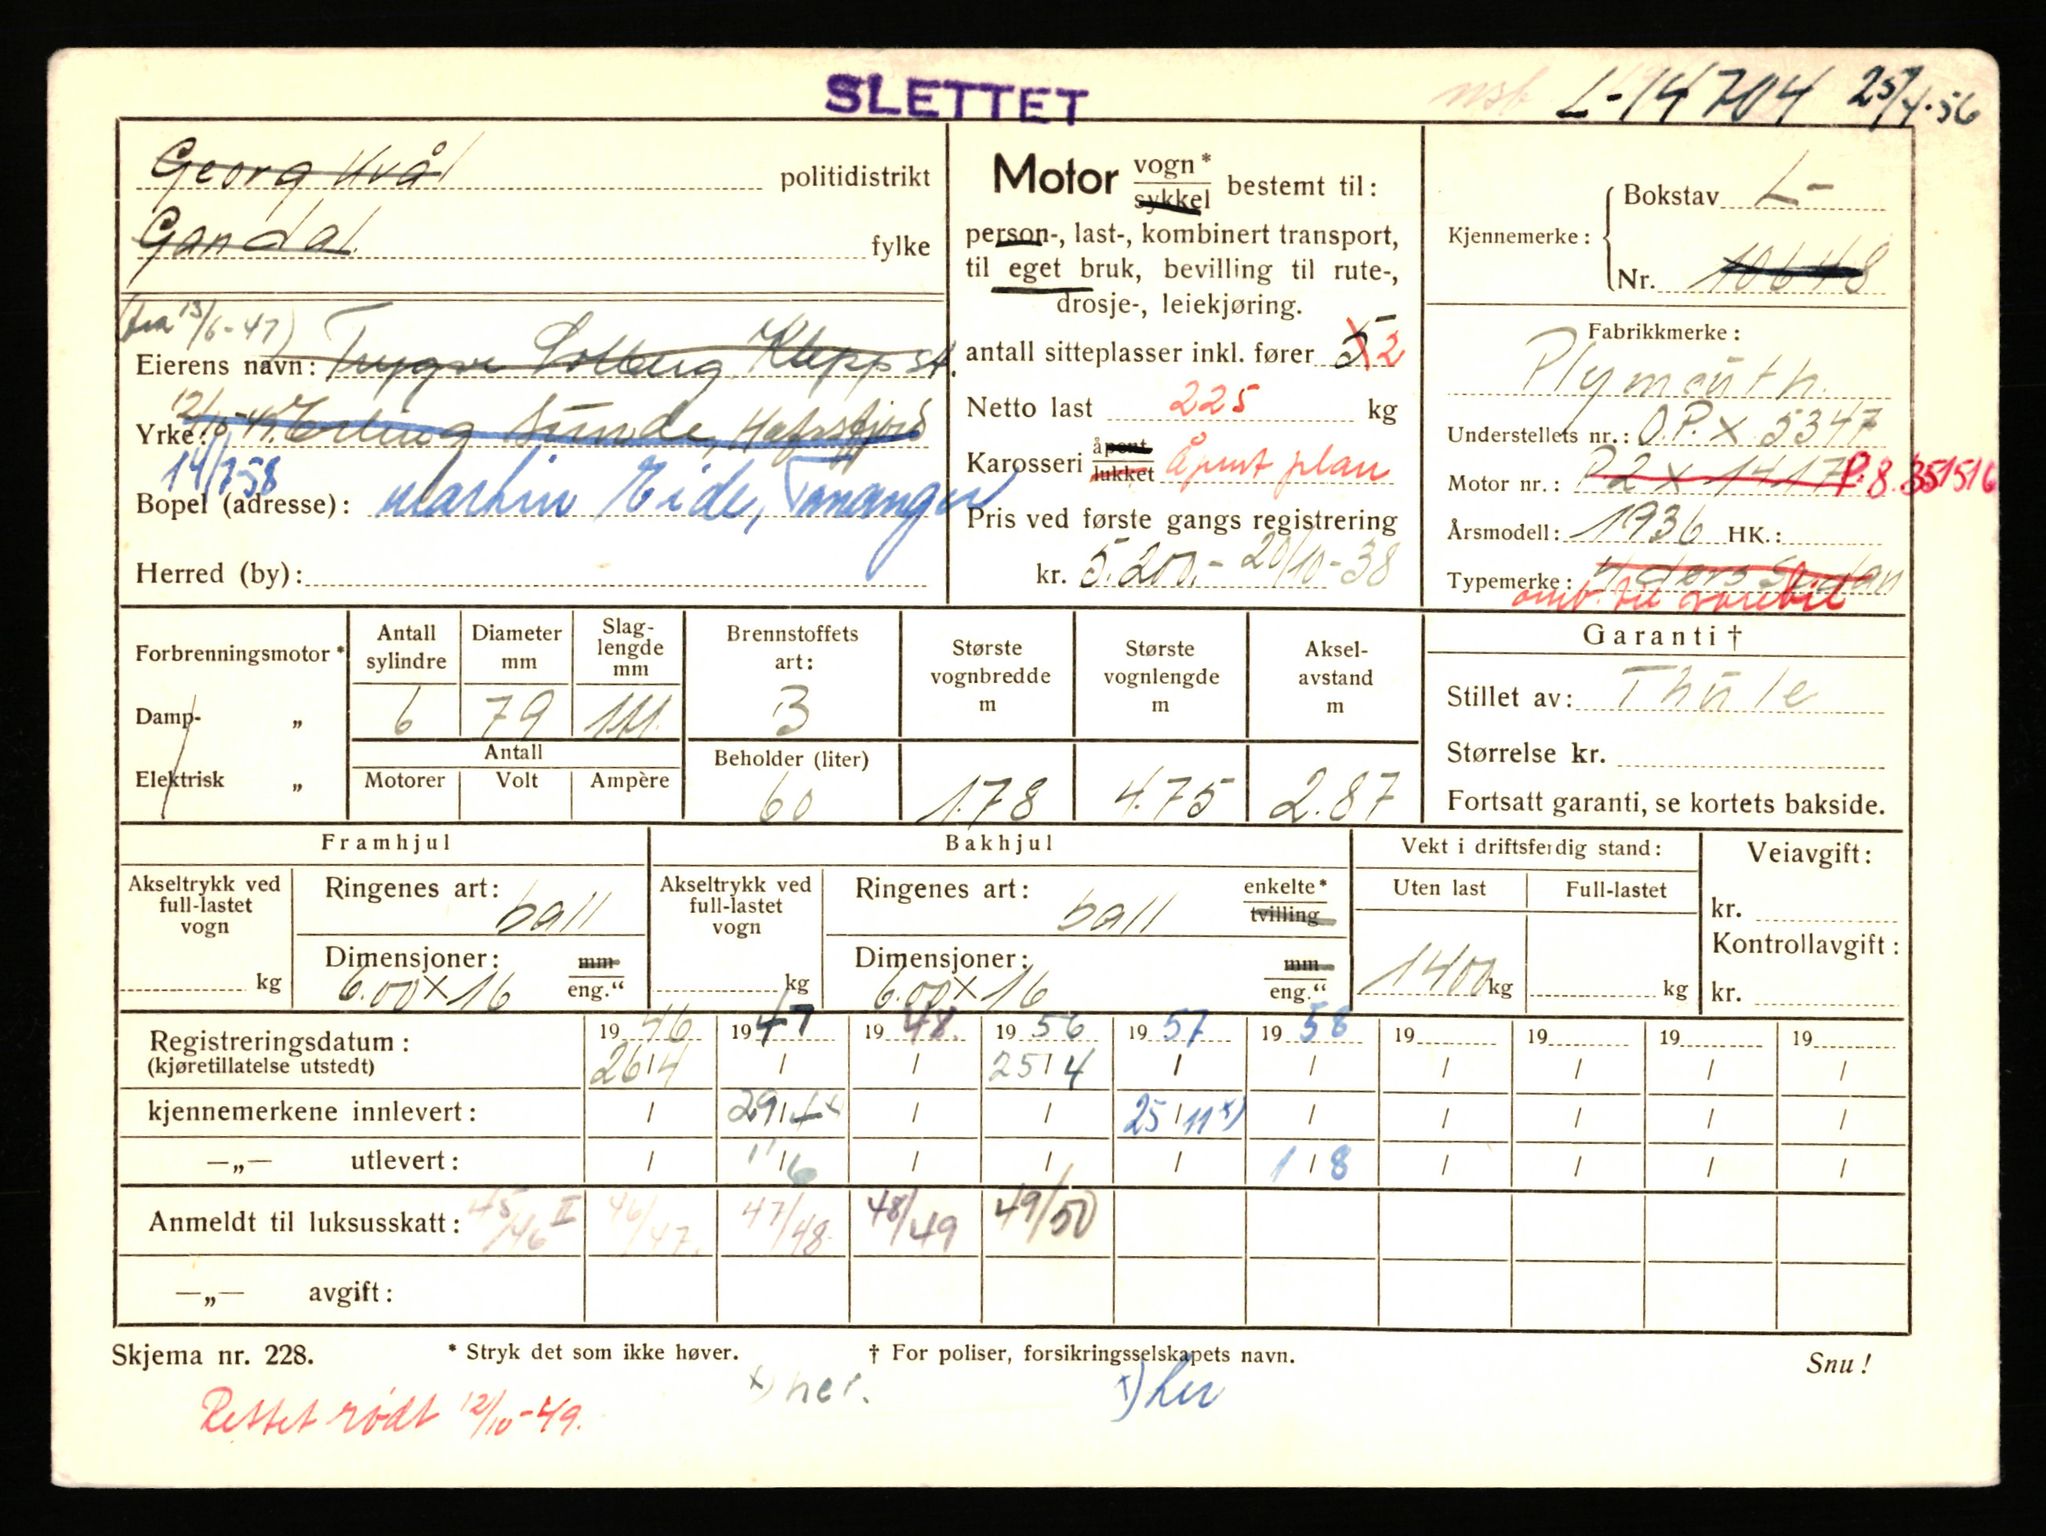 SLETTET
L-14704 25/4-56
Georg Kvål politidistrikt
Gandal. fylke
Motor vogn* sykkel bestemt til:
person-, last-, kombinert transport,
til eget bruk, bevilling til rute-,
drosje-, leiekjøring.
antall sitteplasser inkl. fører 5 2
Netto last 225 kg
Karosseri åpent lukket Åpent plan
Pris ved første gangs registrering
kr. 5.200.- 20/10-38
Kjennemerke: Bokstav L-
Nr. 10648
(fra 13/6-47)
Eierens navn: Trygve Solberg, Klepp st.
12/10-49. Erling Sunde, Hafrsfjord
Yrke:
14/7-58
Bopel (adresse): Martin Eide, Tananger
Herred (by):
Fabrikkmerke:
Plymouth.
Understellets nr.: O.P.X 5347
Motor nr.: P2 X 1417 P.8.351516
Årsmodell: 1936 HK.:
Typemerke: 4 dørs Sedan
omb. til varebil
Forbrenningsmotor*
Damp- „
Elektrisk „
Antall sylindre 6
Diameter mm 79
Slag-lengde mm 111.
Antall
Motorer Volt Ampère
Brennstoffets art: B
Beholder (liter) 60
Største vognbredde m 1.78
Største vognlengde m 4.75
Aksel-avstand m 2.87
Garanti †
Stillet av: Thule
Størrelse kr.
Fortsatt garanti, se kortets bakside.
Framhjul
Akseltrykk ved full-lastet vogn kg
Ringenes art: ball
Dimensjoner: 6.00 x 16 mm eng."
Bakhjul
Akseltrykk ved full-lastet vogn kg
Ringenes art: ball enkelte* tvilling
Dimensjoner: 6.00 x 16 mm eng."
Vekt i driftsferdig stand:
Uten last Full-lastet
1400 kg kg
Veiavgift:
kr.
Kontrollavgift:
kr.
Registreringsdatum: 19 46 19 47 19 48. 19 56 19 57 19 58 19 19 19 19
(kjøretillatelse utstedt) 26/4 / / 25/4 / / / / / /
kjennemerkene innlevert: / 29/4 x) / / 25/11 x) / / / / /
—„— utlevert: / 11/6 / / / 1/8 / / / /
Anmeldt til luksusskatt: 45/46 II 46/47. 47/48. 48/49 49/50
—„— avgift:
Skjema nr. 228. * Stryk det som ikke høver. † For poliser, forsikringsselskapets navn. Snu!
x) her. x) her
Rettet rødt 12/10-49.